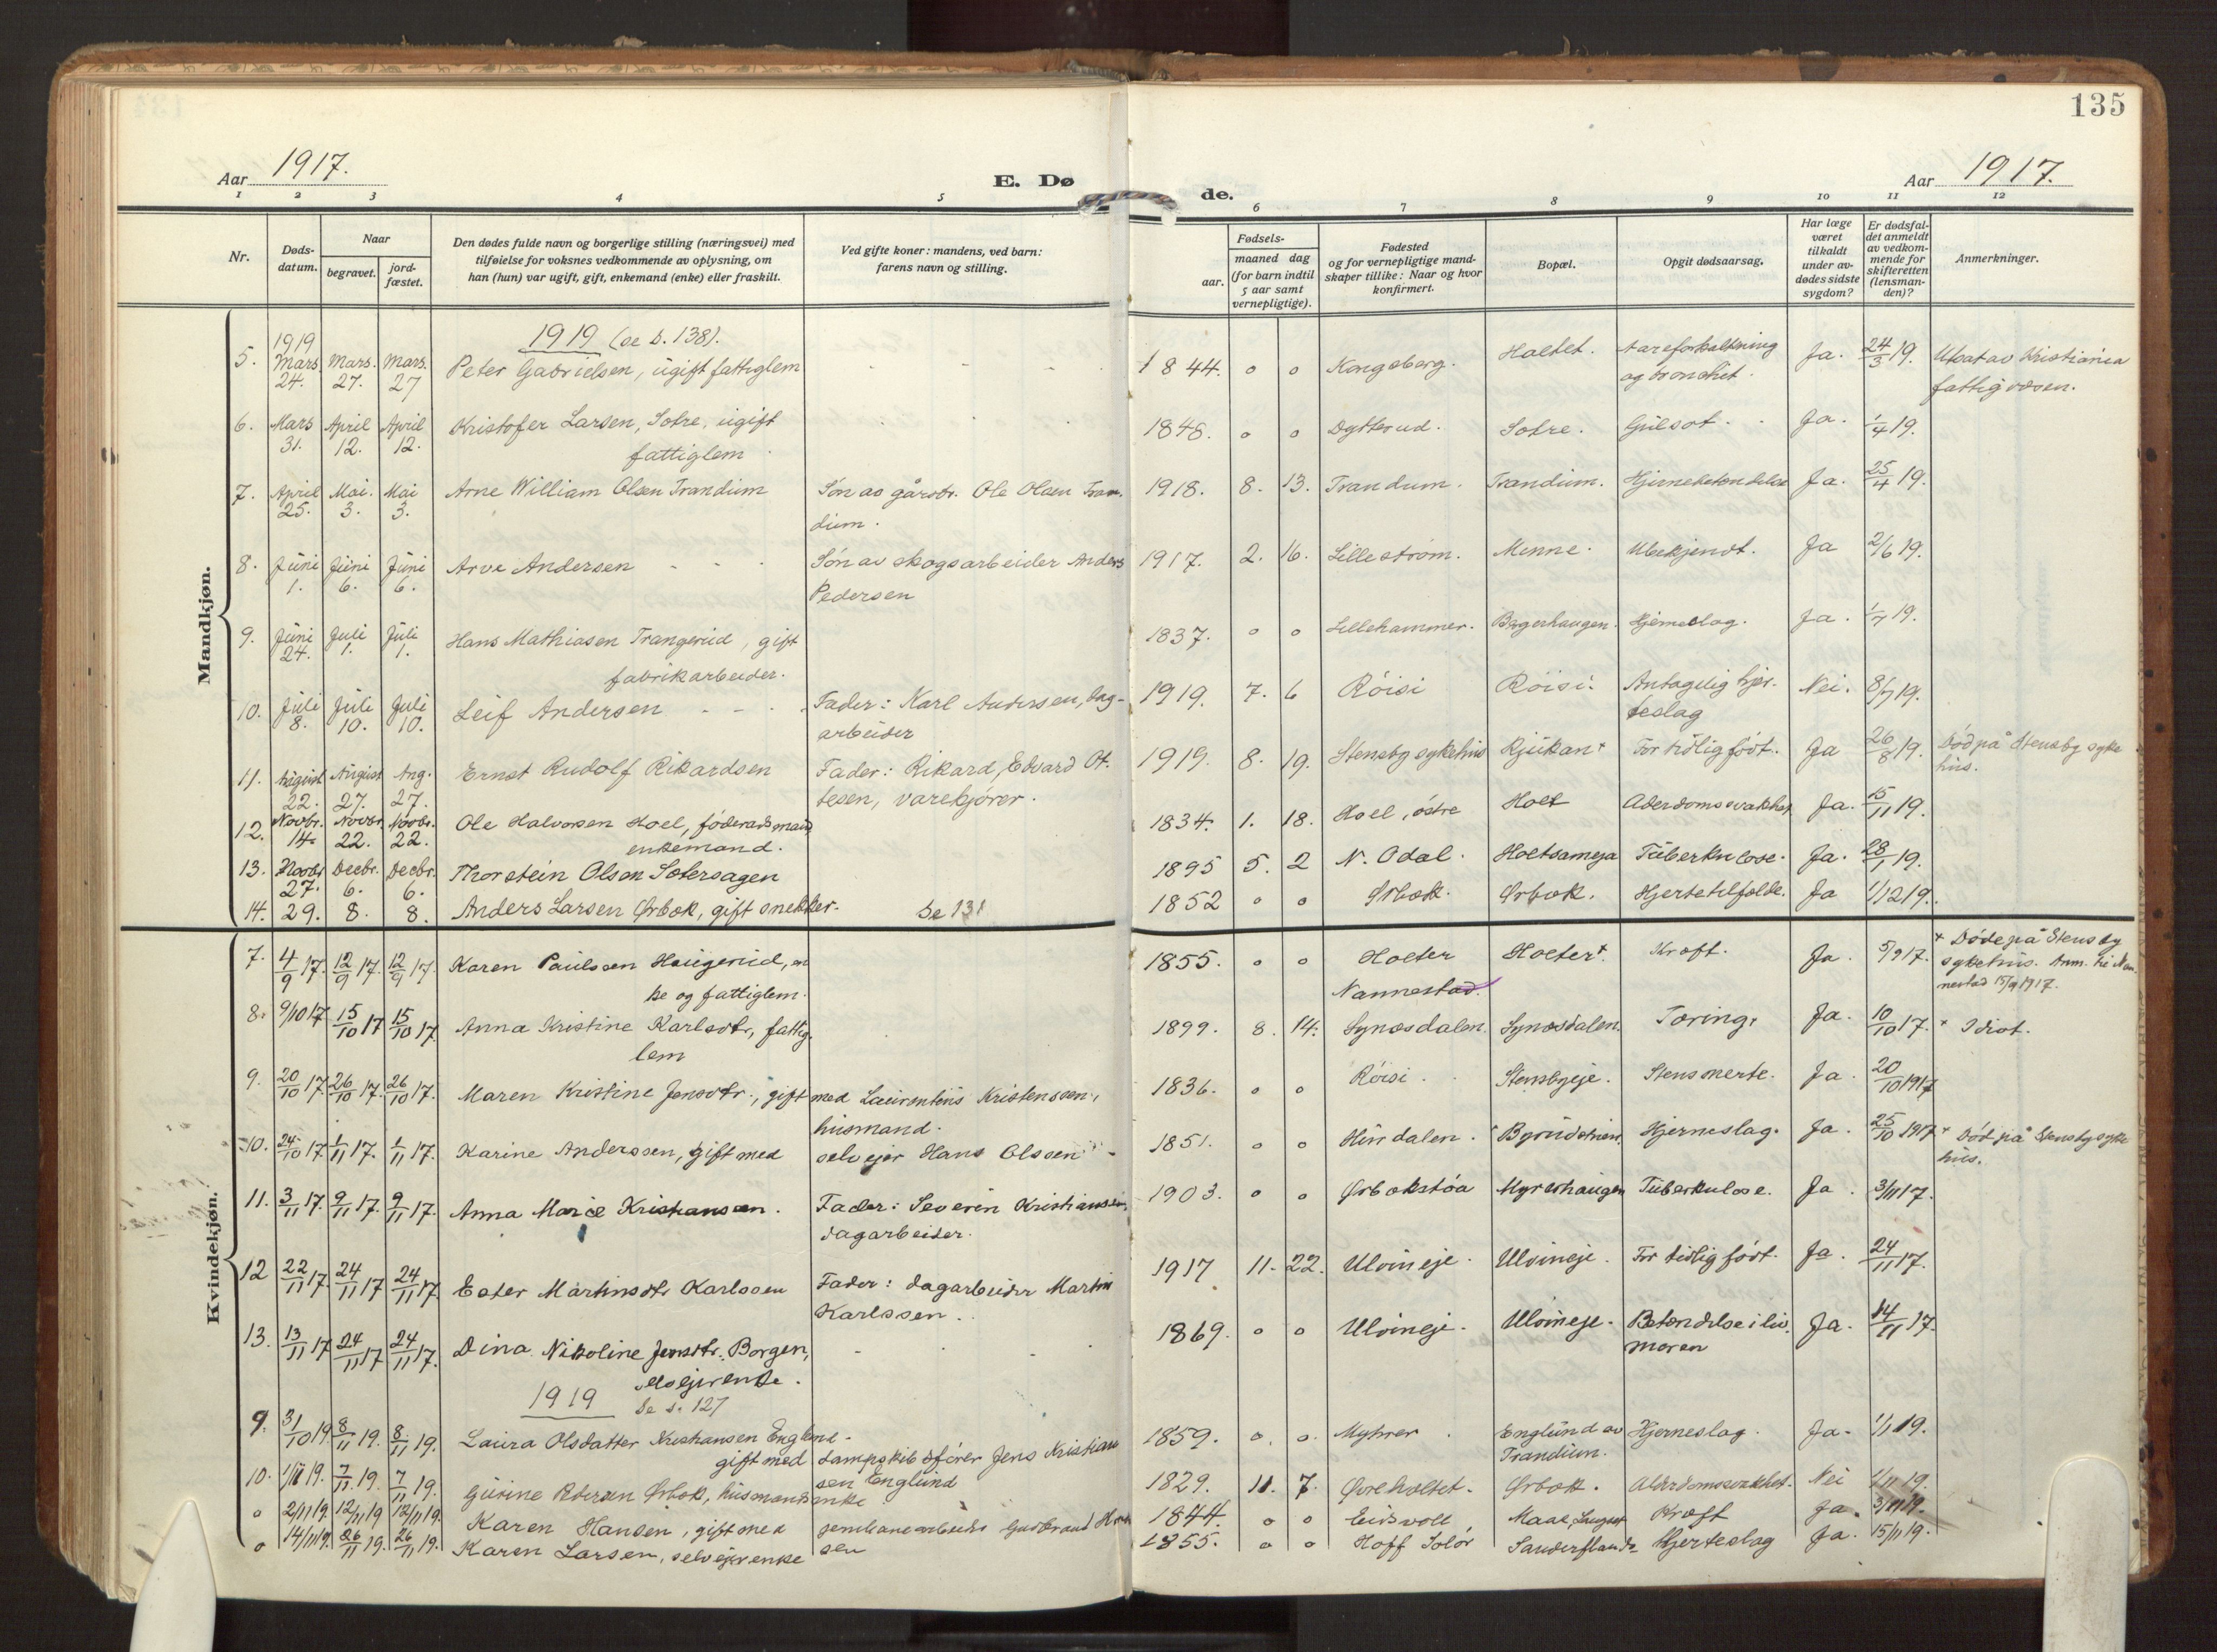 135
Aar 1917. E. Døde. Aar 1917.
1 2 3 4 5 6 7 8 9 10 11 12
Nr. Dødsdatum. Naar begravet. jordfæstet. Den dødes fulde navn og borgerlige stilling (næringsvei) med tilføielse for voksnes vedkommende av oplysning, om han (hun) var ugift, gift, enkemand (enke) eller fraskilt. Ved gifte koner: mandens, ved barn: farens navn og stilling. Fødsels- aar. maaned dag (for barn indtil 5 aar samt vernepligtige). Fødested og for vernepligtige mandskaper tillike: Naar og hvor konfirmert. Bopæl. Opgit dødsaarsag. Har læge været tilkaldt under avdødes sidste sygdom? Er dødsfaldet anmeldt av vedkommende for skifteretten (lensmanden)? Anmerkninger.
Mandkjøn.
1919 (se S. 138).
5. 1919 Mars 24. Mars. 27. Mars. 27 Peter Gabrielsen, ugift fattiglem 1844. o o Kongsberg. Holtet. Aareforkalkning og bronchit. Ja. 24/3 19. Utsat av Kristiania fattigvæsen.
6. Mars 31. April 12. April 12. Kristofer Larsen, Sotre, ugift fattiglem 1848. o o Dytterud. Sotre. Gulsot. Ja. 1/4 19.
7. April 25. Mai. 3. Mai 3. Arne William Olsen Trandum Søn av gårdbr. Ole Olsen Trandum. 1918. 8. 13. Trandum. Trandum. Hjernebetændelse Ja. 25/4 19.
8. Juni 1. Juni 6. Juni 6. Arve Andersen Søn av skogsarbeider Anders Pedersen 1917. 2. 16. Lillestrøm. Minne. Ubekjendt. Ja 2/6 19.
9. Juni 24. Juli 1. Juli 1. Hans Mathiasen Trangerud, gift fabrikarbeider. 1837. o o Lillehammer. Bagerhaugen. Hjerneslag. Ja. 1/7 19.
10. Juli 8. Juli 10. Juli 10. Leif Andersen Fader: Karl Andersen, dagarbeider 1919. 7. 6 Röisi Röisi. Antagelig hjerteslag Nei. 8/7 19.
11. August 22. August 27. Aug. 27. Ernst Rudolf Rikardsen Fader: Rikard, Edvard Ottesen, varekjører. 1919. 8. 19. Stensby sykehus Rjukan + For tidlig født. Ja 26/8 19. Död på Stensby sykehus.
12. Novbr. 14. Novbr. 22. Novbr. 22. Ole Halvorsen Hoel, föderaadsmand enkemand. 1834. 1. 18. Hoel, östre Hoel Alderdomssvakhet Ja. 15/11 19.
13. Novbr 27. Decbr. 6. Decbr. 6. Thorstein Olsen Sotersagen 1895 5. 2 N. Odal. Holtsameja Tuberkulose. Ja. 28/11 19.
14. 29. 8. 8. Anders Larsen Ørbæk, gift snekker. Se 131 1852 o o Ørbæk. Ørbæk. Hjertetilfælde. Ja 1/12 19.
Kvindekjøn.
7. 4/9 17. 12/9 17. 12/9 17. Karen Paulsen Haugerud, enke og fattiglem. 1855. o o Holter Nannestad. Holter +. Kræft. Ja. 5/9 17. + Döde på Stensby sykehus. Anm. til Nannestad 15/9 1917.
8. 9/10 17 15/10 17 15/10 17. Anna Kristine Karlsdtr, fattiglem 1899. 8. 14. Synosdalen. Synosdalen. Tæring. Ja. 10/10 17. + Idiot.
9. 20/10 17. 26/10 17. 26/10 17. Maren Kristine Jensdtr., gift med Laurentius Kristenssen, husmand. 1836. o o Röisi Stensbyeje. Stensmerte. Ja. 20/10 1917
10. 24/10 17 1/11 17. 1/11 17. Karine Anderssen, gift med selveier Hans Olssen 1851. o o Hurdalen. Hjerneslag. Ja. 25/10 1917 + Död på Stensby sykehus.
11. 3/11 17. 9/11 17. 9/11 17. Anna Marie Kristiansen. Fader: Severin Kristiansen, dagarbeider. 1903. o o Ørbækstøa Myrerhaugen Tuberkulose. Ja. 3/11 17.
12 22/11 17. 24/11 17 24/11 17. Ester Martinsdtr Karlssen Fader: dagarbeider Martin Karlssen. 1917 11. 22. Ulvineje. Ulvineje. For tidlig født. Ja. 24/11 17.
13. 13/11 17 24/11 17 24/11 17. Dina Nikoline Jensdtr. Borgen, selveierenke. 1869. o o Ulvineje. Ulvineje. Betændelse i livmoren Ja. 14/11 17.
1919 Se s. 127
9. 31/10 19 8/11 19. 8/11 19. Laura Olsdatter Kristiansen Englund gift med Dampskibsfører Jens Kristiansen Englund 1859. o. o. Myhrer Englund av Trandum. Hjerneslag. Ja. 1/11 19.
10. 1/11 19. 7/11 19. 7/11 19. Gurine Pedersen Ørbæk, husmandsenke 1829. 11. 7. Øvreholtet. Ørbæk. Alderdomssvakhet. Nei 1/11 19.
o 2/11 19. 12/11 19 12/11 19. Karen Hansen, gift med jernbanearbeider Gudbrand Hansen 1844. o o Eidsvold Kræft Ja. 3/11 19.
o 14/11 19. 26/11 19. 26/11 19. Karen Larsen, selveierenke 1855. o o Hoff Solör Sander Hjerteslag Ja. 15/11 19.